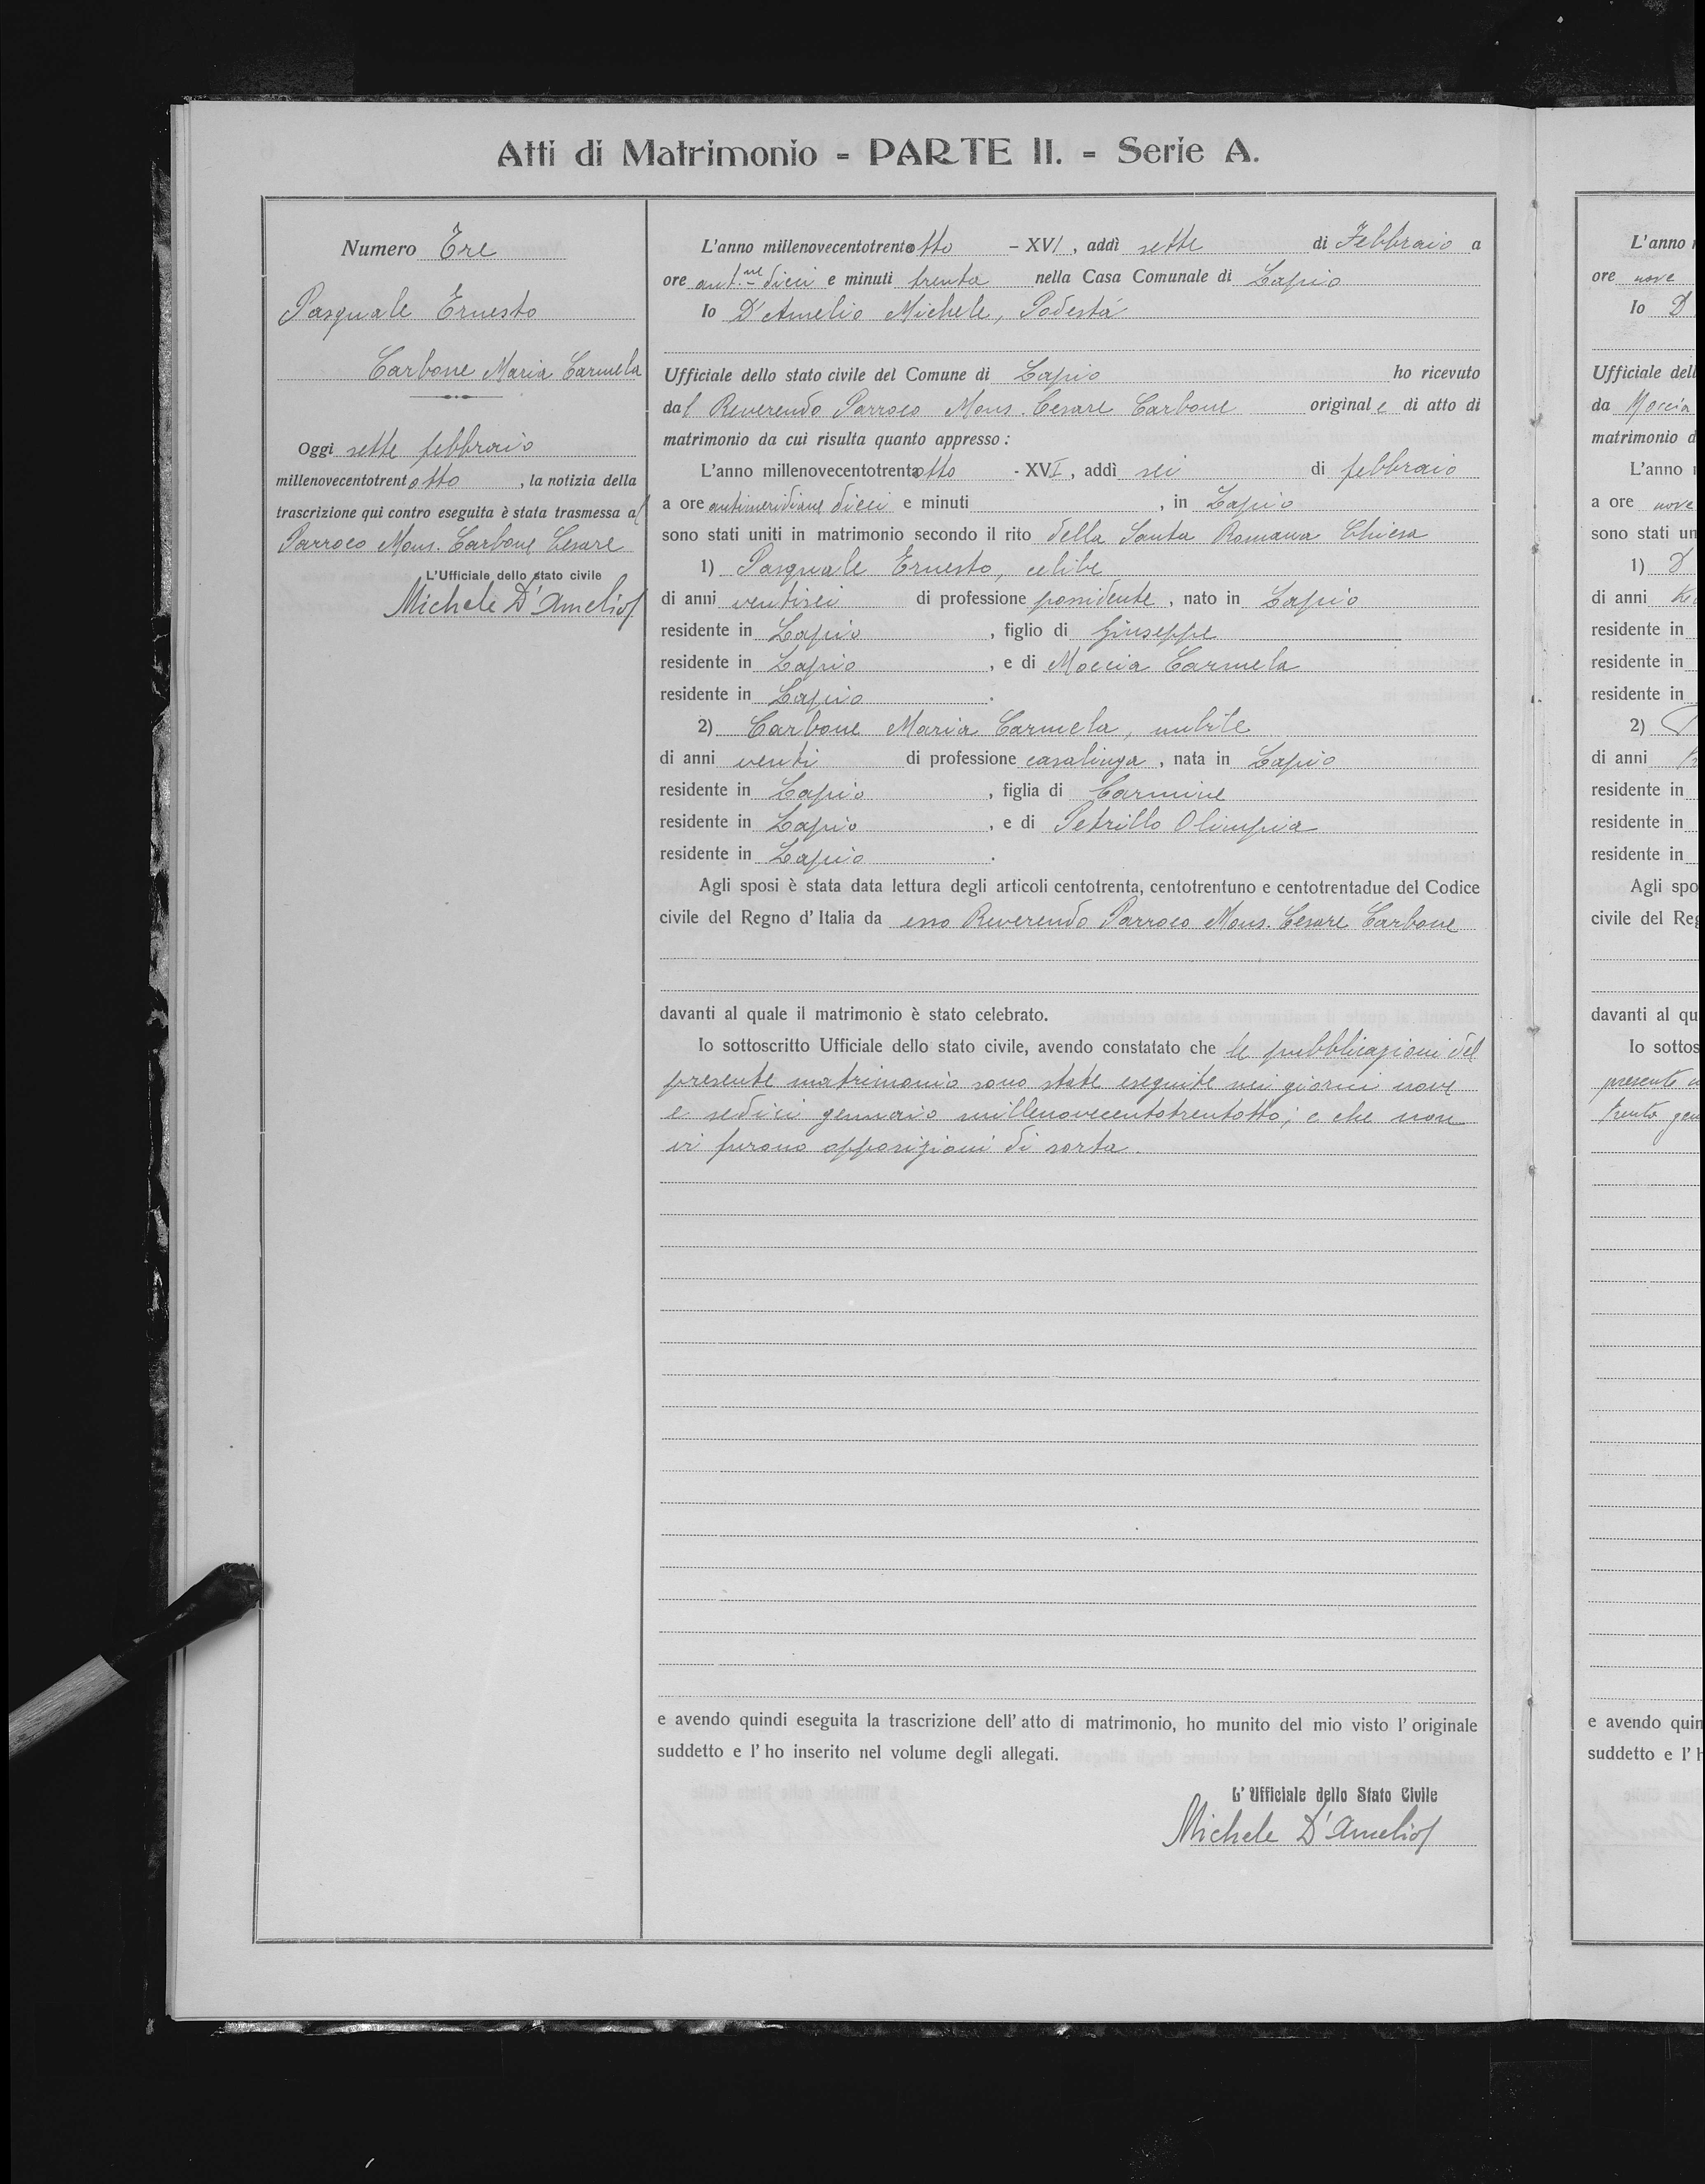 Atti di Matrimonio - PARTE II. - Serie A.
Numero Tre
Pasquale Ernesto
Carbone Maria Carmela
Oggi sette febbraio
millenovecentotrentotto, la notizia della
trascrizione qui contro eseguita è stata trasmessa al
Parroco Mons. Carbone Cesare
L'Ufficiale dello stato civile
Michele D'Amelio
L'anno millenovecentotrentotto - XVI, addì sette di Febbraio a
ore ant.ne dieci e minuti trenta nella Casa Comunale di Lapio
Io D'Amelio Michele, Podestà
Ufficiale dello stato civile del Comune di Lapio ho ricevuto
dal Reverendo Parroco Mons. Cesare Carbone originale di atto di
matrimonio da cui risulta quanto appresso:
L'anno millenovecentotrentaotto - XVI, addì sei di febbraio
a ore antimeridiane dieci e minuti , in Lapio
sono stati uniti in matrimonio secondo il rito della Santa Romana Chiesa
1) Pasquale Ernesto, celibe
di anni ventisei di professione possidente, nato in Lapio
residente in Lapio, figlio di Giuseppe
residente in Lapio, e di Moccia Carmela
residente in Lapio.
2) Carbone Maria Carmela, nubile
di anni venti di professione casalinga, nata in Lapio
residente in Lapio, figlia di Carmine
residente in Lapio, e di Petrillo Olimpia
residente in Lapio.
Agli sposi è stata data lettura degli articoli centotrenta, centotrentuno e centotrentadue del Codice
civile del Regno d'Italia da esso Reverendo Parroco Mons. Cesare Carbone
davanti al quale il matrimonio è stato celebrato.
Io sottoscritto Ufficiale dello stato civile, avendo constatato che le pubblicazioni del
presente matrimonio sono state eseguite nei giorni nove
e sedici gennaio millenovecentotrentotto; e che non
vi furono opposizioni di sorta.
e avendo quindi eseguita la trascrizione dell'atto di matrimonio, ho munito del mio visto l'originale
suddetto e l'ho inserito nel volume degli allegati.
L'Ufficiale dello Stato Civile
Michele D'Amelio
L'anno
ore nove
Io D
Ufficiale dell
da Moccia
matrimonio d
L'anno
a ore nove
sono stati un
1) D
di anni
residente in
residente in
residente in
2)
di anni
residente in
residente in
residente in
Agli spo
civile del Reg
davanti al qu
Io sottos
presente
trenta gen
e avendo quin
suddetto e l'h